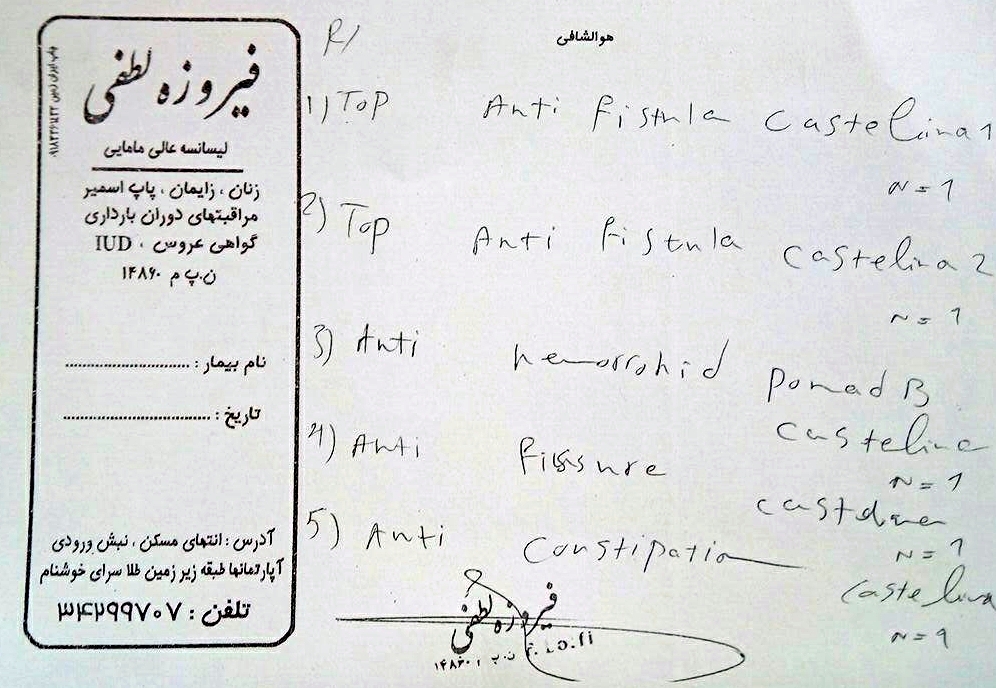 هوالشافی
فیروزه لطفی
لیسانسه عالی مامایی
زنان ، زایمان ، پاپ اسمیر
مراقبتهای دوران بارداری
گواهی عروس ، IUD
ن.پ م ۱۴۸۶۰
نام بیمار :
تاریخ :
آدرس : انتهای مسکن ، نبش ورودی
آپارتمانها طبقه زیر زمین طلا سرای خوشنام
تلفن : ۳۴۲۹۹۷۰۷
R/
1) Top Anti fistula castelina 1
N=1
2) Top Anti fistula castelina 2
N=1
3) Anti hemorrohid pomad B
castelina
N=1
4) Anti fissure
N=1
5) Anti constipation
castelina
N=1
فیروزه لطفی
F. Lotfi
ن.پ ۱۴۸۶۰